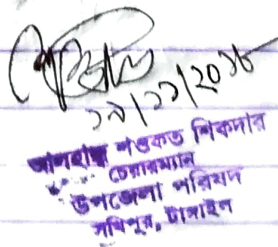 ১৯/১১/2018
আলহাজ্ব শওকত শিকদার
চেয়ারম্যান
উপজেলা পরিষদ
সখিপুর, টাঙ্গাইল